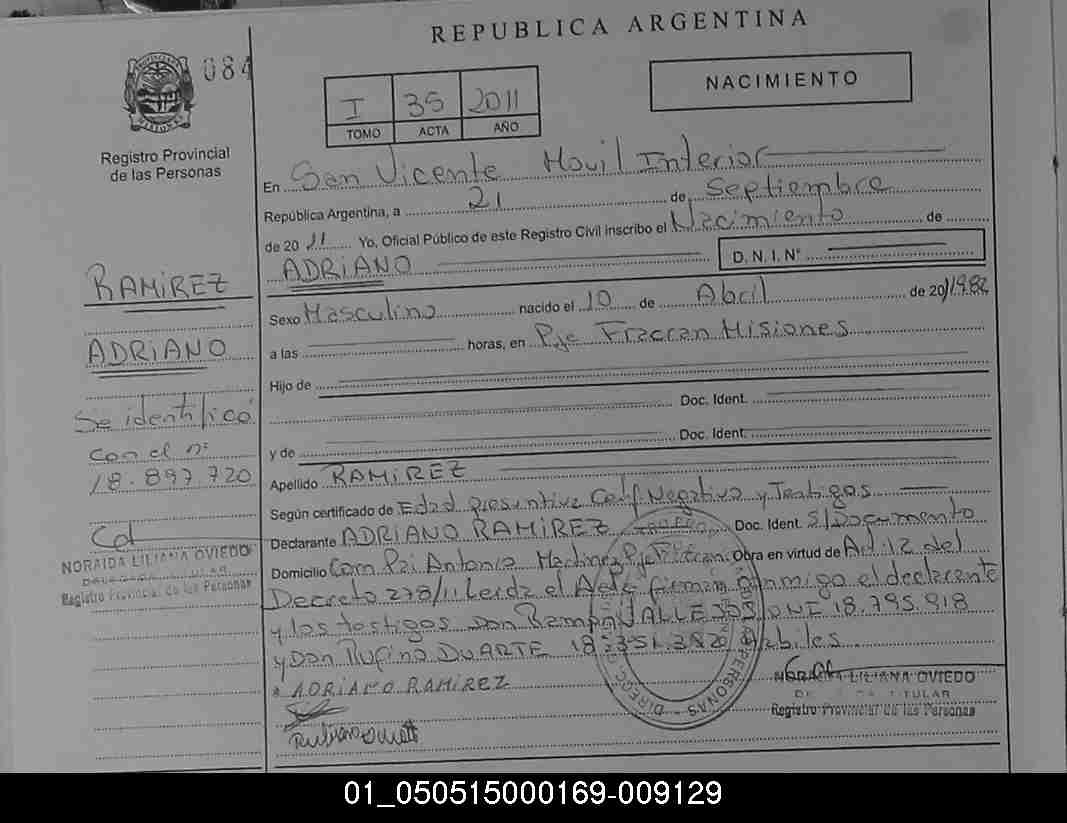 REPUBLICA ARGENTINA
084
PROVINCIA DE MISIONES
Registro Provincial
de las Personas
I 35 2011
TOMO ACTA AÑO
NACIMIENTO
En San Vicente Movil Interior
República Argentina, a 21 de Septiembre
de 2011 Yo, Oficial Público de este Registro Civil inscribo el Nacimiento de
ADRIANO D.N.I. Nº
Sexo Masculino nacido el 10 de Abril de 20/1982
a las horas, en Pje Fracran Misiones
Hijo de
Doc. Ident.
y de Doc. Ident.
Apellido RAMIREZ
Según certificado de Edad presuntiva Cert Negativo y Testigos
Declarante ADRIANO RAMIREZ Doc. Ident. S/Documento
Domicilio Com Pai Antonio Martinez Pje Fracran Obra en virtud de Art. 12 del
Decreto 278/11 Leida el Acta firman conmigo el declarante
y los testigos Don Ramon VALLEJOS DNI 18.795.918
y Don Rufino DUARTE Habiles
ADRIANO RAMIREZ
RAMIREZ
ADRIANO
Se identificó
con el nº
18.897.720
NORAIDA LILIANA OVIEDO
DELEGADA TITULAR
Registro Provincial de las Personas
NORAIDA LILIANA OVIEDO
DELEGADA TITULAR
Registro Provincial de las Personas
DIREC PERSONAS
01_050515000169-009129